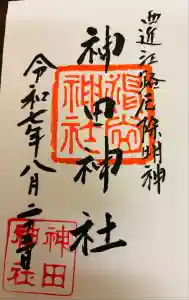 西近江路厄除明神
神田神社
令和七年八月二日
神社
神田
神社